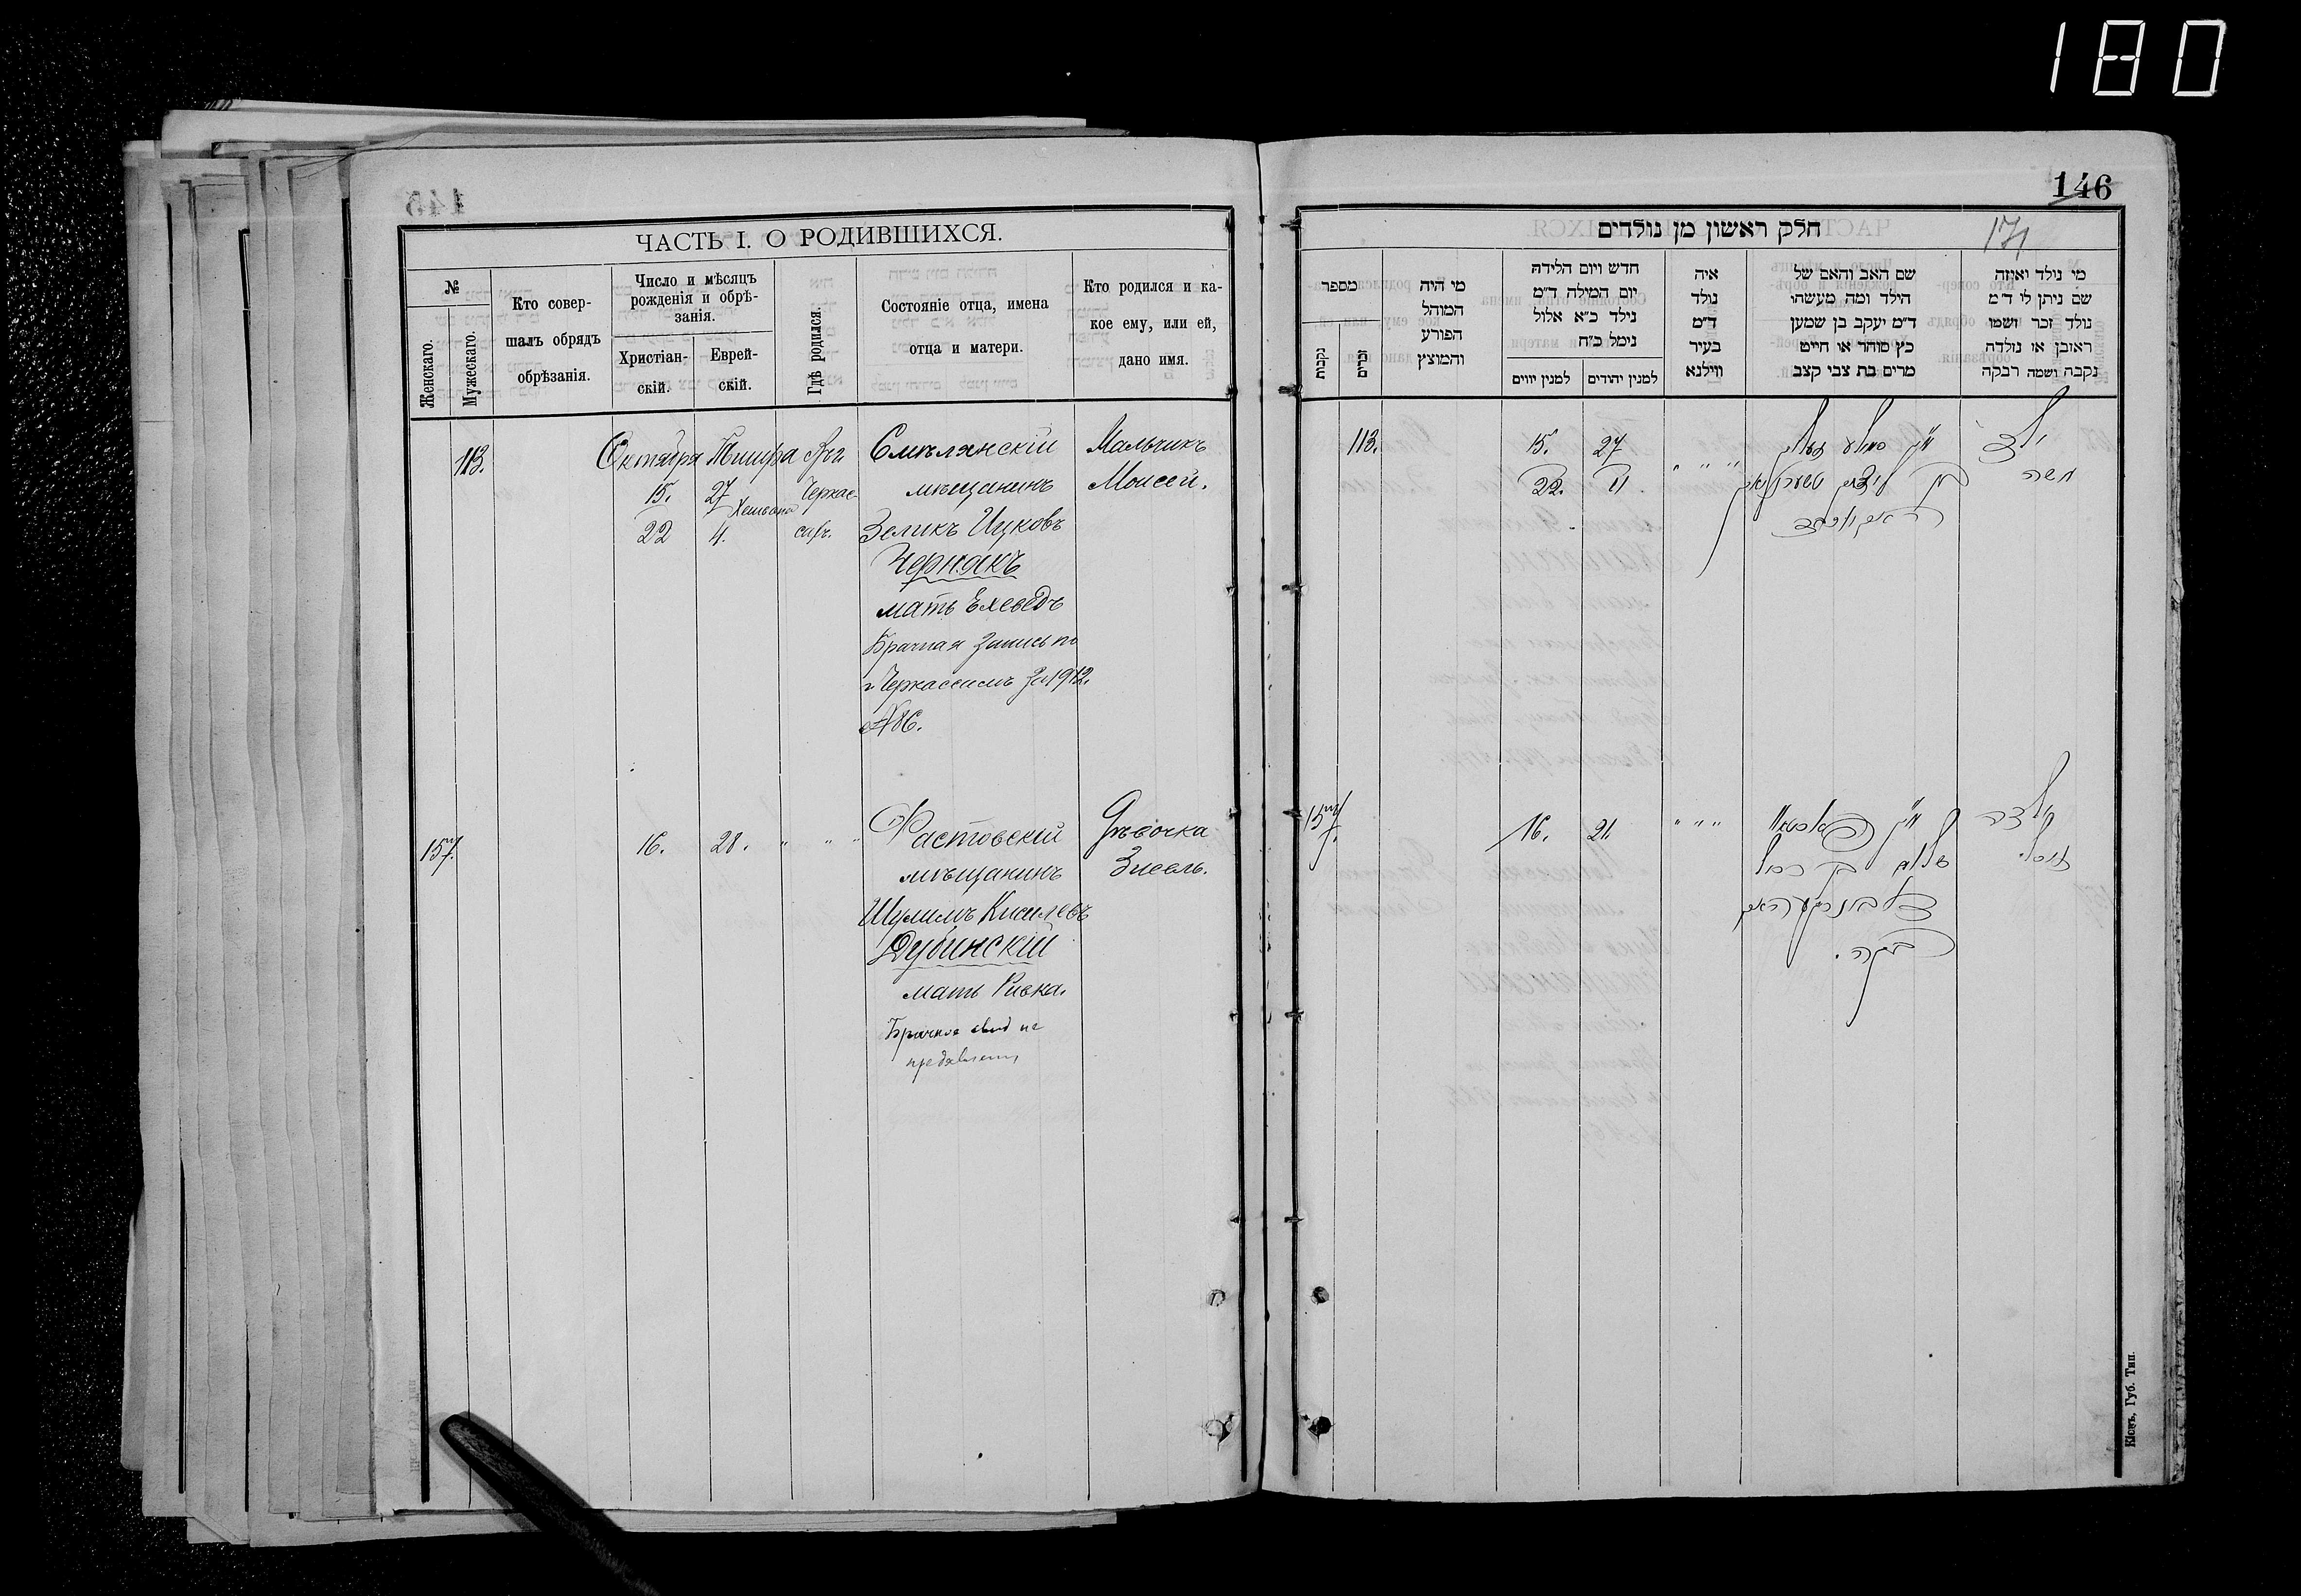 180
ЧАСТЬ I. О РОДИВШИХСЯ.
№
Женскаго.
Мужескаго.
Кто совер-
шалъ обрядъ
обрѣзанія.
Число и мѣсяцъ
рожденія и обрѣ-
занія.
Христіан-
скій.
Еврей-
скій.
Гдѣ родился.
Состояніе отца, имена
отца и матери.
Кто родился и ка-
кое ему, или ей,
дано имя.
113.
Октября
15.
22
27
Хешвана
4.
Черкас-
Смѣлянскій
мѣщанинъ
Зеликъ Ицковъ
Чернякъ
мать Ехеведъ
Брачная запись по
г. Черкассамъ за 1912.
№ 86.
Мальчикъ
Моисей.
157.
16.
28.
" " "
Фастовскій
мѣщанинъ
Шулимъ Кисилевъ
Дубинскій
мать Ривка.
Брачное свид не
Дѣвочка
Зисель.
146
171
חלק ראשון מן נולדים
מי נילד ואיזה
שם ניתן לו ד״מ
נולד זכר ושמו
ראובן או נולדה
נקבה ושמה רבקה
שם האב והאם של
הילד ומה מעשהו
ד״מ יעקב בן שמען
כץ סוחר או חייט
מרים בת צבי קצב
איה
נולד
ד״מ
בעיר
ווילנא
חדש ויום הלידה
יום המילה ד״מ
נילד כ״א אלול
נימל כ״ח
למנין יהודים
למנין יווים
מי היה
המוהל
הפורע
והמוצץ
מספר
זכרים
נקבות
113.
15.
22.
27
" " "
ילד
משה
157.
16.
21.
" " "
ילדה
רבקה.
Кіевъ, Губ. Тип.